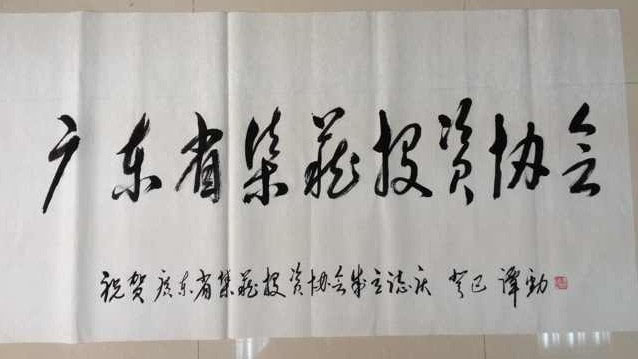 广东省集藏投资协会
祝贺广东省集藏投资协会成立誌庆 癸巳 谭勁